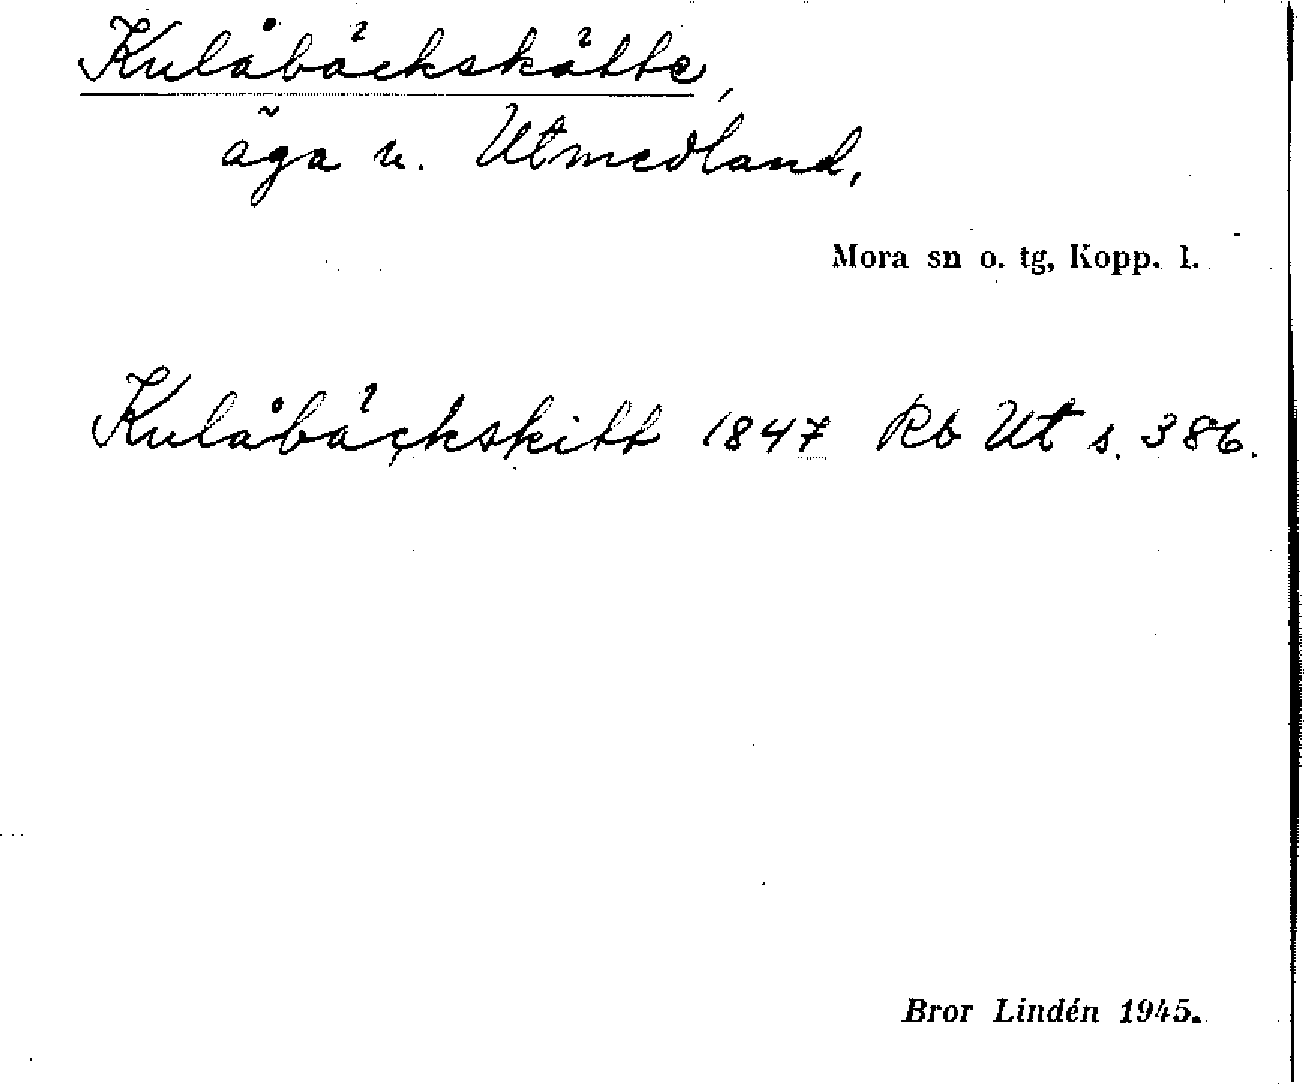 Kulåbäckskätte,
äga v. Utmedland,
Mora sn o. tg, Kopp. l.
Kulåbäckskitt 1847 Rb Ut s. 386.
Bror Lindén 1945.